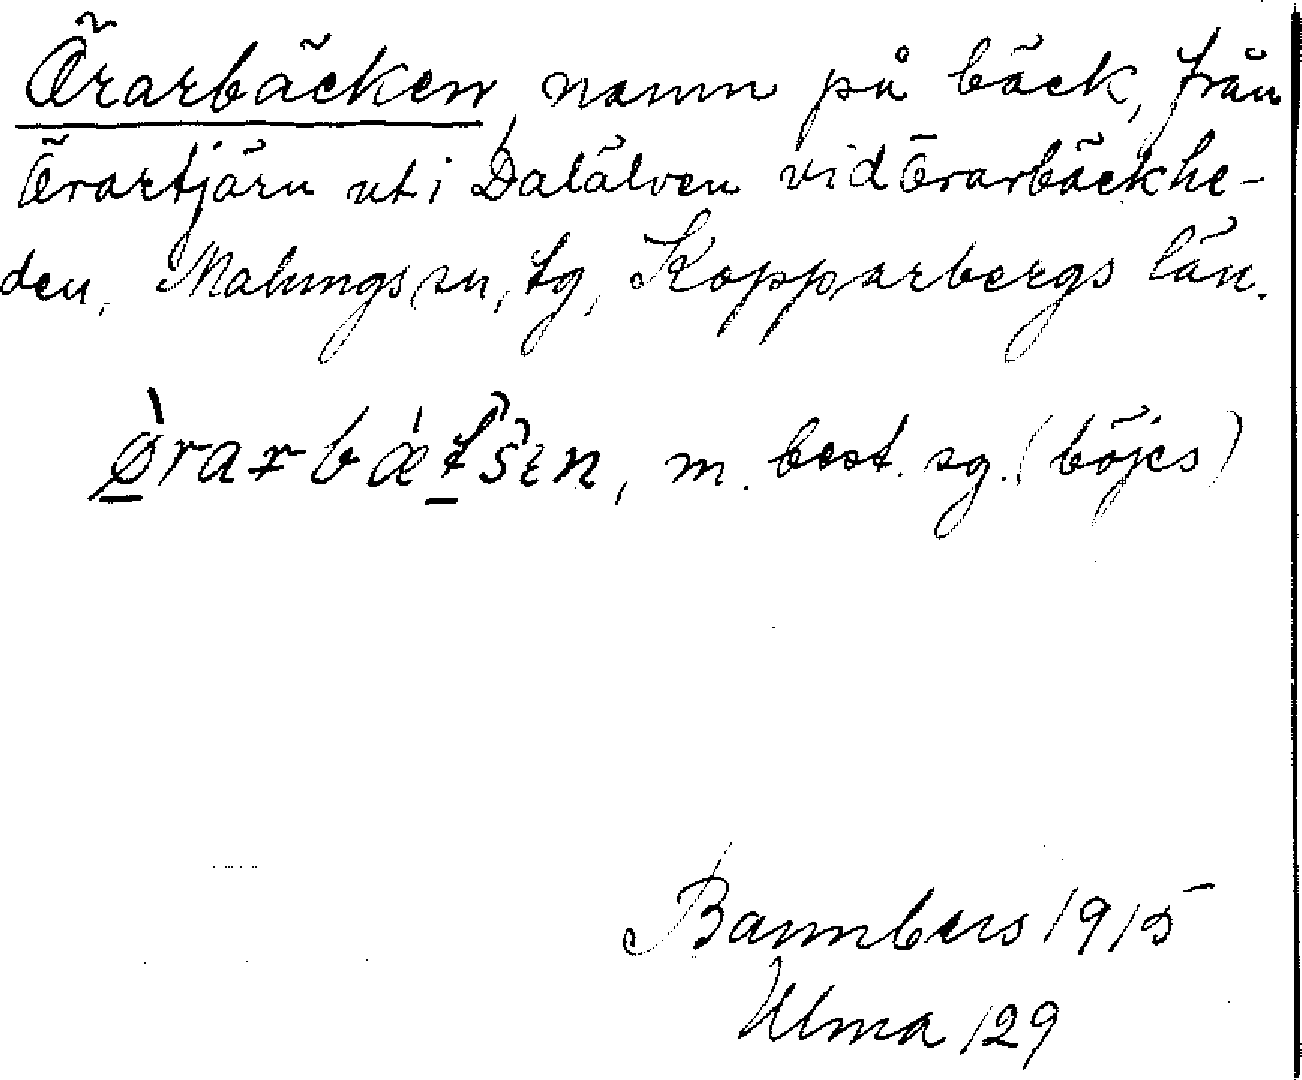 Örarbäcken, namn på bäck, från
Örartjärn uti Dalälven vid Örarbäckhe-
den, Malungs sn, tg, Kopparbergs län.
ø̀rarbǽt̑s̑ɛn, m. best. sg. (böjes)
Bannbers 1915
Ulma 129